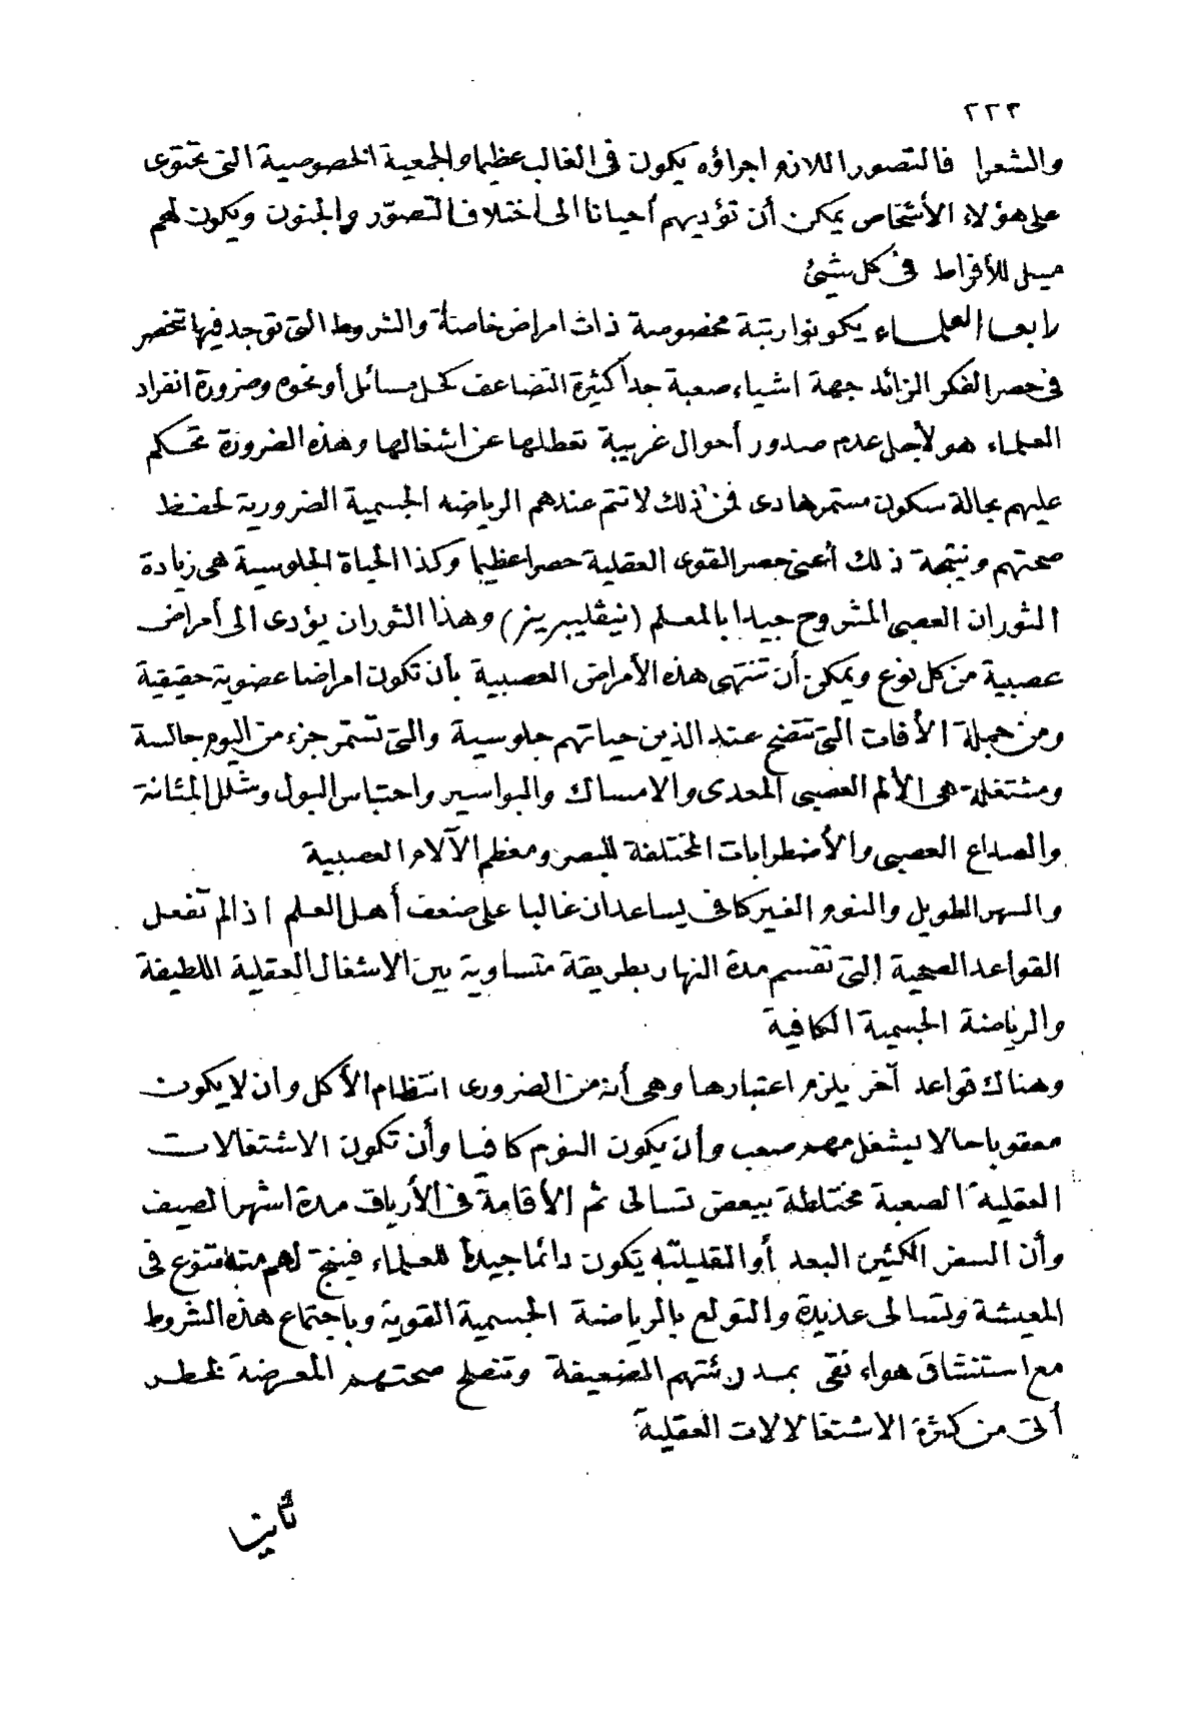 ٢٢٣
والشعرا فالتصور اللازم اجراؤه يكون فى الغالب عظيما والجمعية الخصوصية التى تحتوى
على هؤلاء الأشخاص يمكن أن تؤديهم أحيانا الى اختلاف التصوّر والجنون ويكون لهم
ميل للأفراط فى كل شيئ
رابعا العلماء يكونوا رتبة مخصوصة ذات امراض خاصة والشروط التى توجد فيها تنحصر
فى حصر الفكر الزائد جهة اشياء صعبة جدا كثيرة التضاعف كحل مسائل أو نحوه وضرورة انفراد
العلماء هو لأجل عدم صدور أحوال غريبة تعطلها عن اشغالها وهذه الضرورة تحكم
عليهم بحالة سكون مستمر هادى فمن ذلك لا تتم عندهم الرياضه الجسمية الضرورية لحفظ
صحتهم ونتيجة ذلك أعنى حصر القوى العقلية حصرا عظيما وكذا الحياة الجلوسية هى زيادة
الثوران العصبى المشروح جيدا بالمعلم (نيڤليبرينر) وهذا الثوران يؤدى الى أمراض
عصبية من كل نوع ويمكن أن تنتهى هذه الأمراض العصبية بأن تكون امراضا عضوية حقيقية
ومن جملة الأفات التى تتضح عند الذين حياتهم جلوسية والتى تستمر جزء من اليوم جالسة
ومشتغلة هى الألم العصبى المعدى والامساك والبواسير واحتباس البول وشلل المثانة
والصداع العصبى والأضطرابات المختلفة للبصر ومعظم الآلام العصبية
والسهر الطويل والنوم الغير كافى يساعدان غالبا على ضعف أهل العلم اذا لم تفعل
القواعد الصحية التى تقسم مدة النهار بطريقة متساوية بين الاشغال العقلية اللطيفة
والرياضة الجسمية الكافية
وهناك قواعد آخر يلزم اعتبارها وهى أنه من الضرورى انتظام الأكل وان لا يكون
معقوبا حالا بشغل مهم صعب وأن يكون النوم كافيا وأن تكون الاشتغالات
العقلية الصعبة مختلطة ببعض تسالى ثم الأقامة فى الأرياف مدة اشهر الصيف
وأن السفر الكثير البعد أو القليله يكون دائما جيدا للعلماء فينتج لهم منه تنوع فى
المعيشة وتسالى عديدة والتولع بالرياضة الجسمية القوية وباجتماع هذه الشروط
مع استنشاق هواء نقى يمدن رئتهم الضعيفة وتنصلح صحتهم المعرضة لخطر
ألتى من كثرة الاشتغالالات العقلية
ثانيا